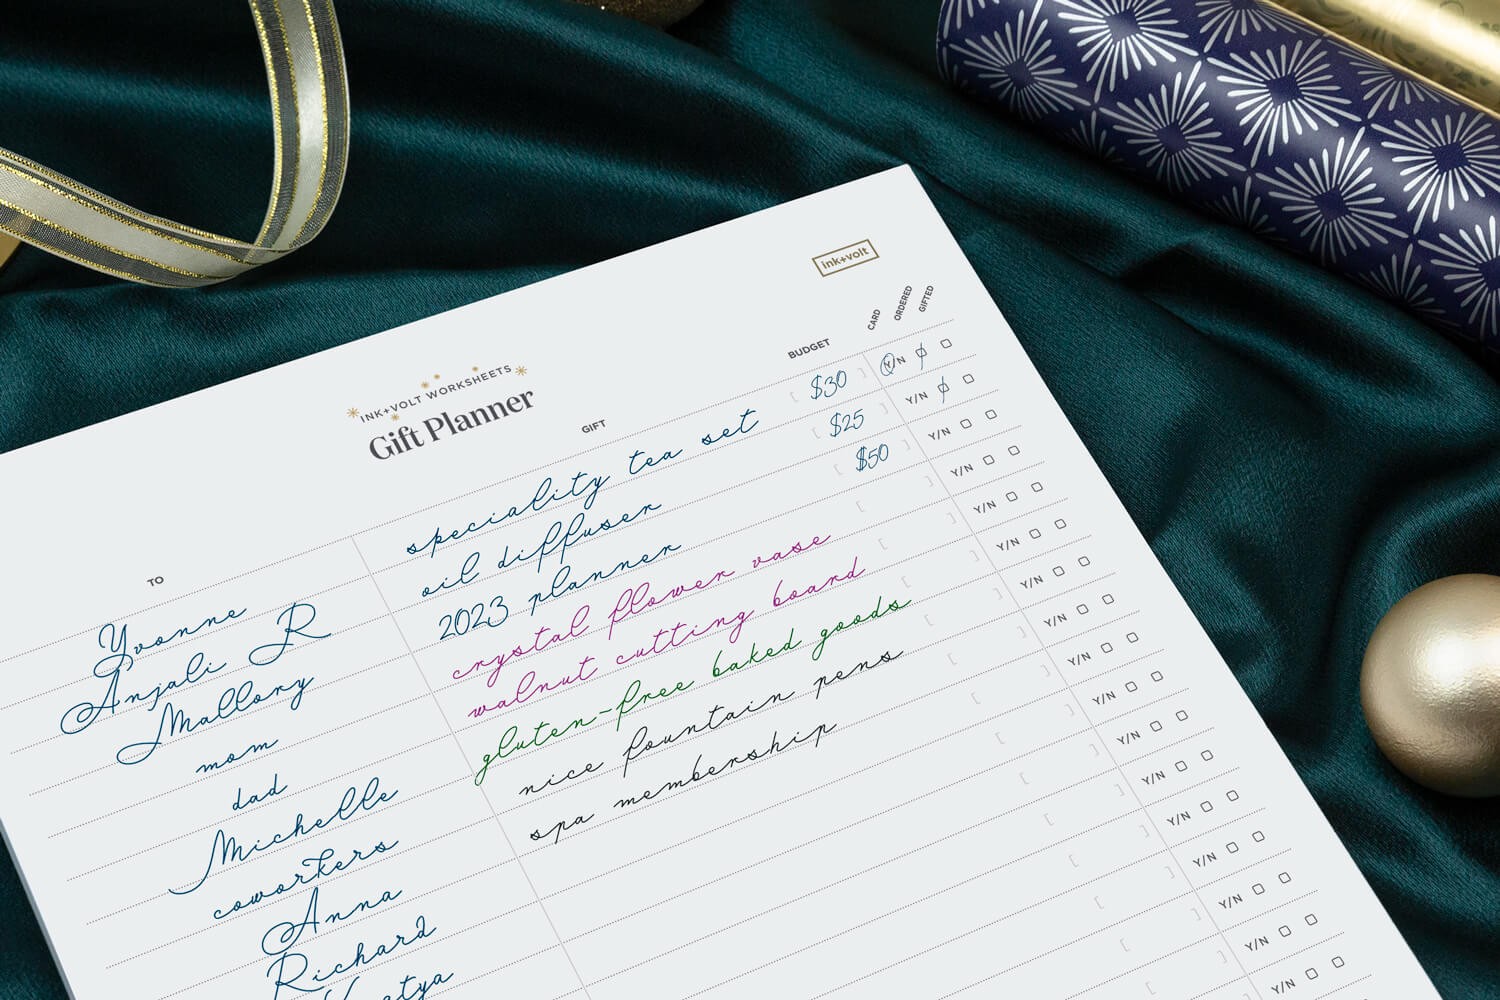 ink+volt
INK+VOLT WORKSHEETS
Gift Planner
TO GIFT BUDGET CARD ORDERED GIFTED
Yvonne speciality tea set [ $30 ] Y/N
Anjali R oil diffuser [ $25 ] Y/N
Mallory 2023 planner [ $50 ] Y/N
mom crystal flower vase [ ] Y/N
dad walnut cutting board [ ] Y/N
Michelle gluten-free baked goods [ ] Y/N
coworkers nice fountain pens [ ] Y/N
Anna spa membership [ ] Y/N
Richard [ ] Y/N
[ ] Y/N
[ ] Y/N
[ ] Y/N
[ ] Y/N
[ ] Y/N
[ ] Y/N
[ ] Y/N
Y/N